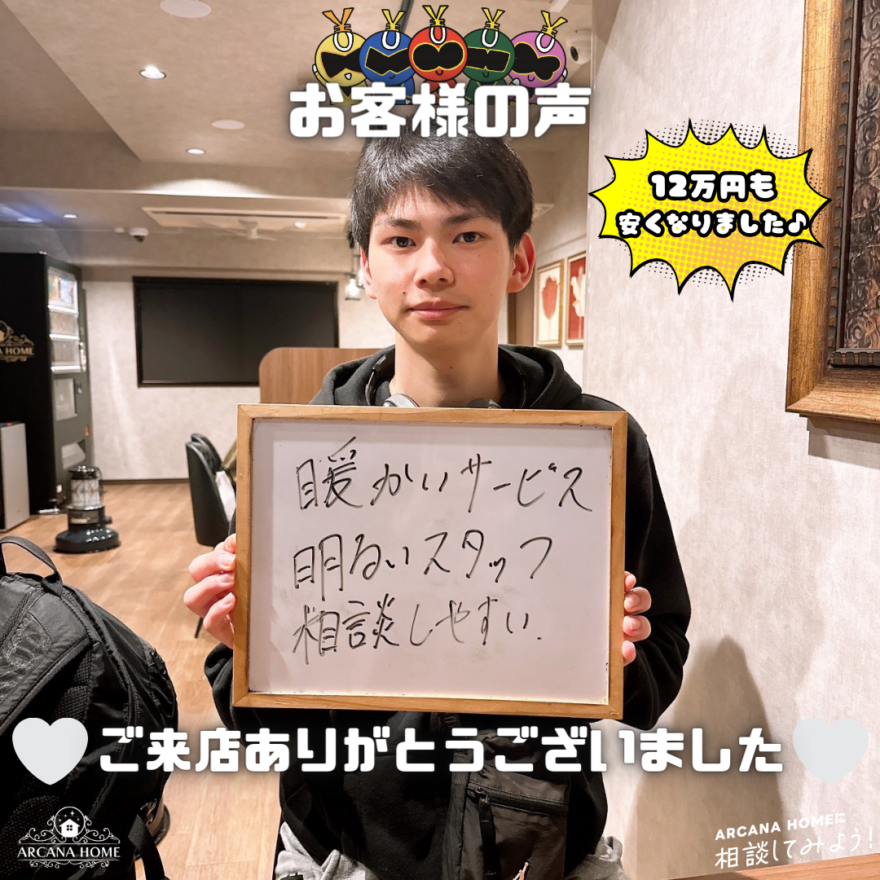 お客様の声
12万円も
安くなりました♪
暖かいサービス
明るいスタッフ
相談しやすい.
ご来店ありがとうございました
ARCANA HOME
ARCANA HOMEに
相談してみよう!